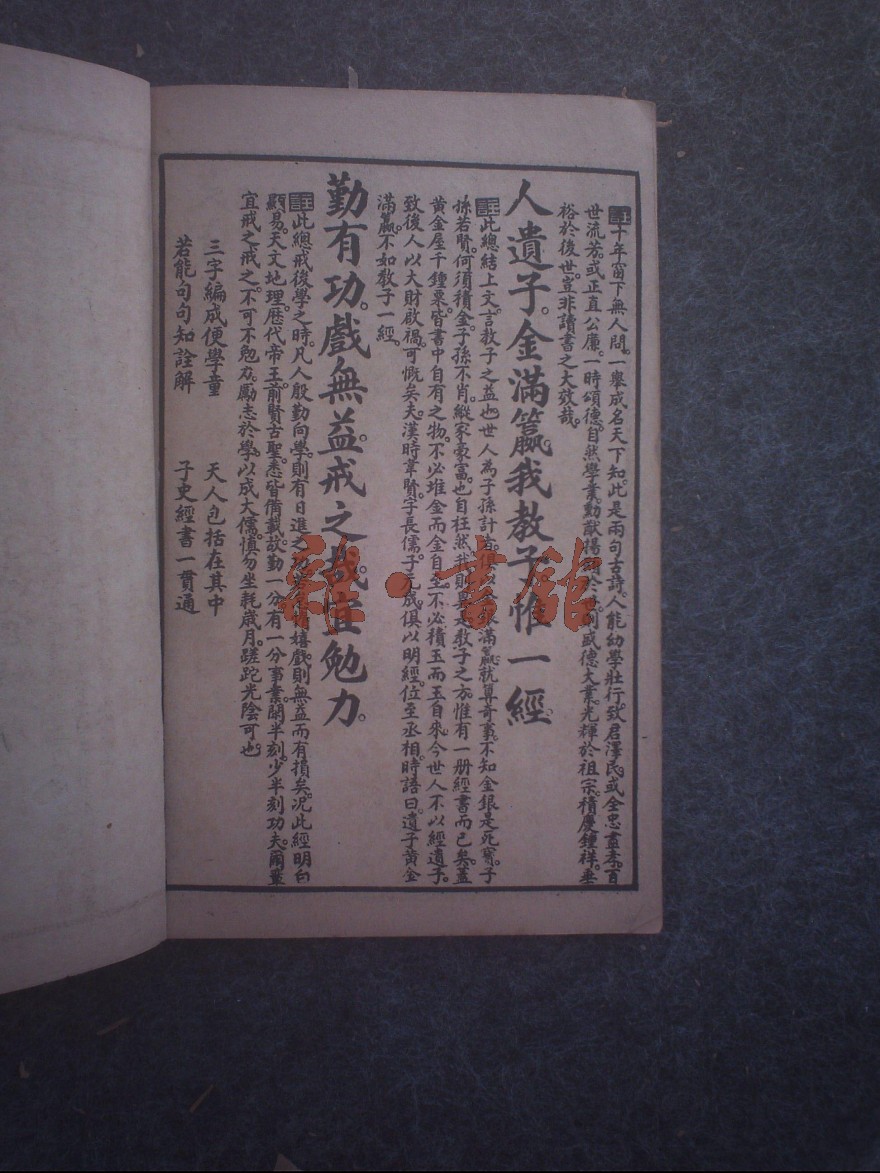 註十年窗下無人問。一舉成名天下知。此是兩句古詩。人能幼學壯行。致君澤民。或全忠盡孝。百
世流芳。或正直公廉。一時頌德。自然學業勳猷揚於德大業。光輝於祖宗。積慶鍾祥。垂
裕於後世。豈非讀書之大效哉。
人遺子。金滿籯。我教子。惟一經。
註此總結上文。言教子之益也。世人為子孫計者。銀滿籯。就算奇事。不知金銀是死寶。子
孫若賢。何須積金。子孫不肖。縱家豪富。也自枉然。我則是教子之方。惟有一册經書而已矣。蓋
黃金屋千鍾粟。皆書中自有之物。不必堆金而金自至。不必積玉而玉自來。今世人不以經遺子。
致後人以大財啟禍。可慨矣夫。漢時韋賢。字長儒。子元成。俱以明經。位至丞相。時語曰。遺子黃金
滿籯。不如教子一經。
勤有功。戲無益。戒之哉。宜勉力。
註此總戒後學之時。凡人殷勤向學。則有日進之嬉戲。則無益而有損矣。况此經明白
顯易。天文地理。歷代帝王。前賢古聖。悉皆備載。故勤一分有一分事業。閑半刻。少半刻功夫。爾輩
宜戒之戒之。不可不勉力。勵志於學。以成大儒。慎勿坐耗歲月。蹉跎光陰可也。
三字編成便學童　天人包括在其中
若能句句知詮解　子史經書一貫通
雜·書館